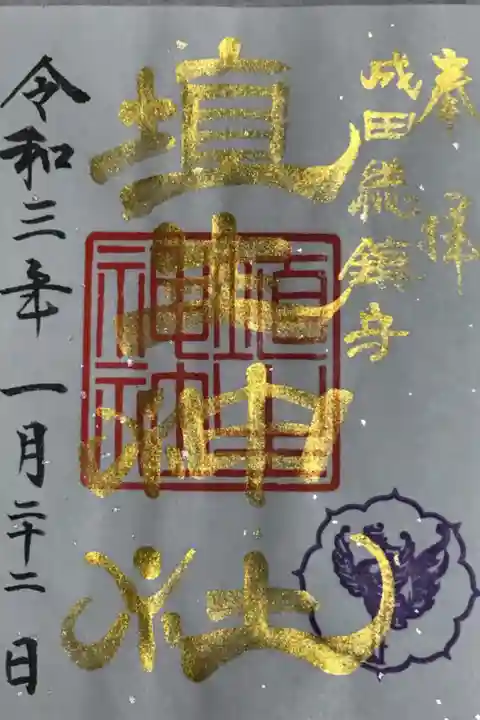 奉拝
成田総鎮守
埴生神社
令和三年一月二十二日
埴生神社